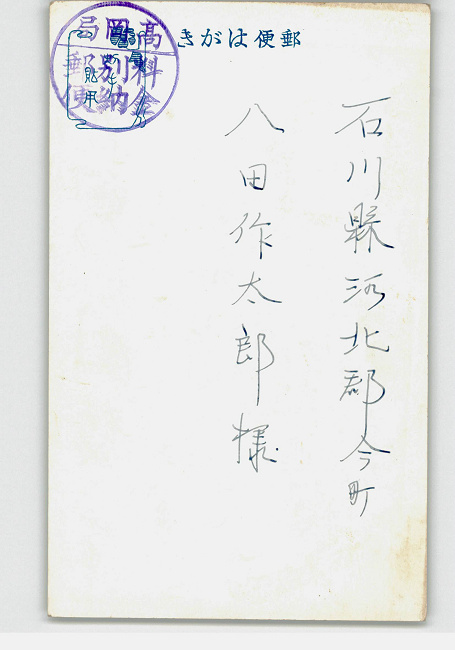 郵便はがき
高岡局
料金別納
郵便
石川縣河北郡今町
八田作太郎様